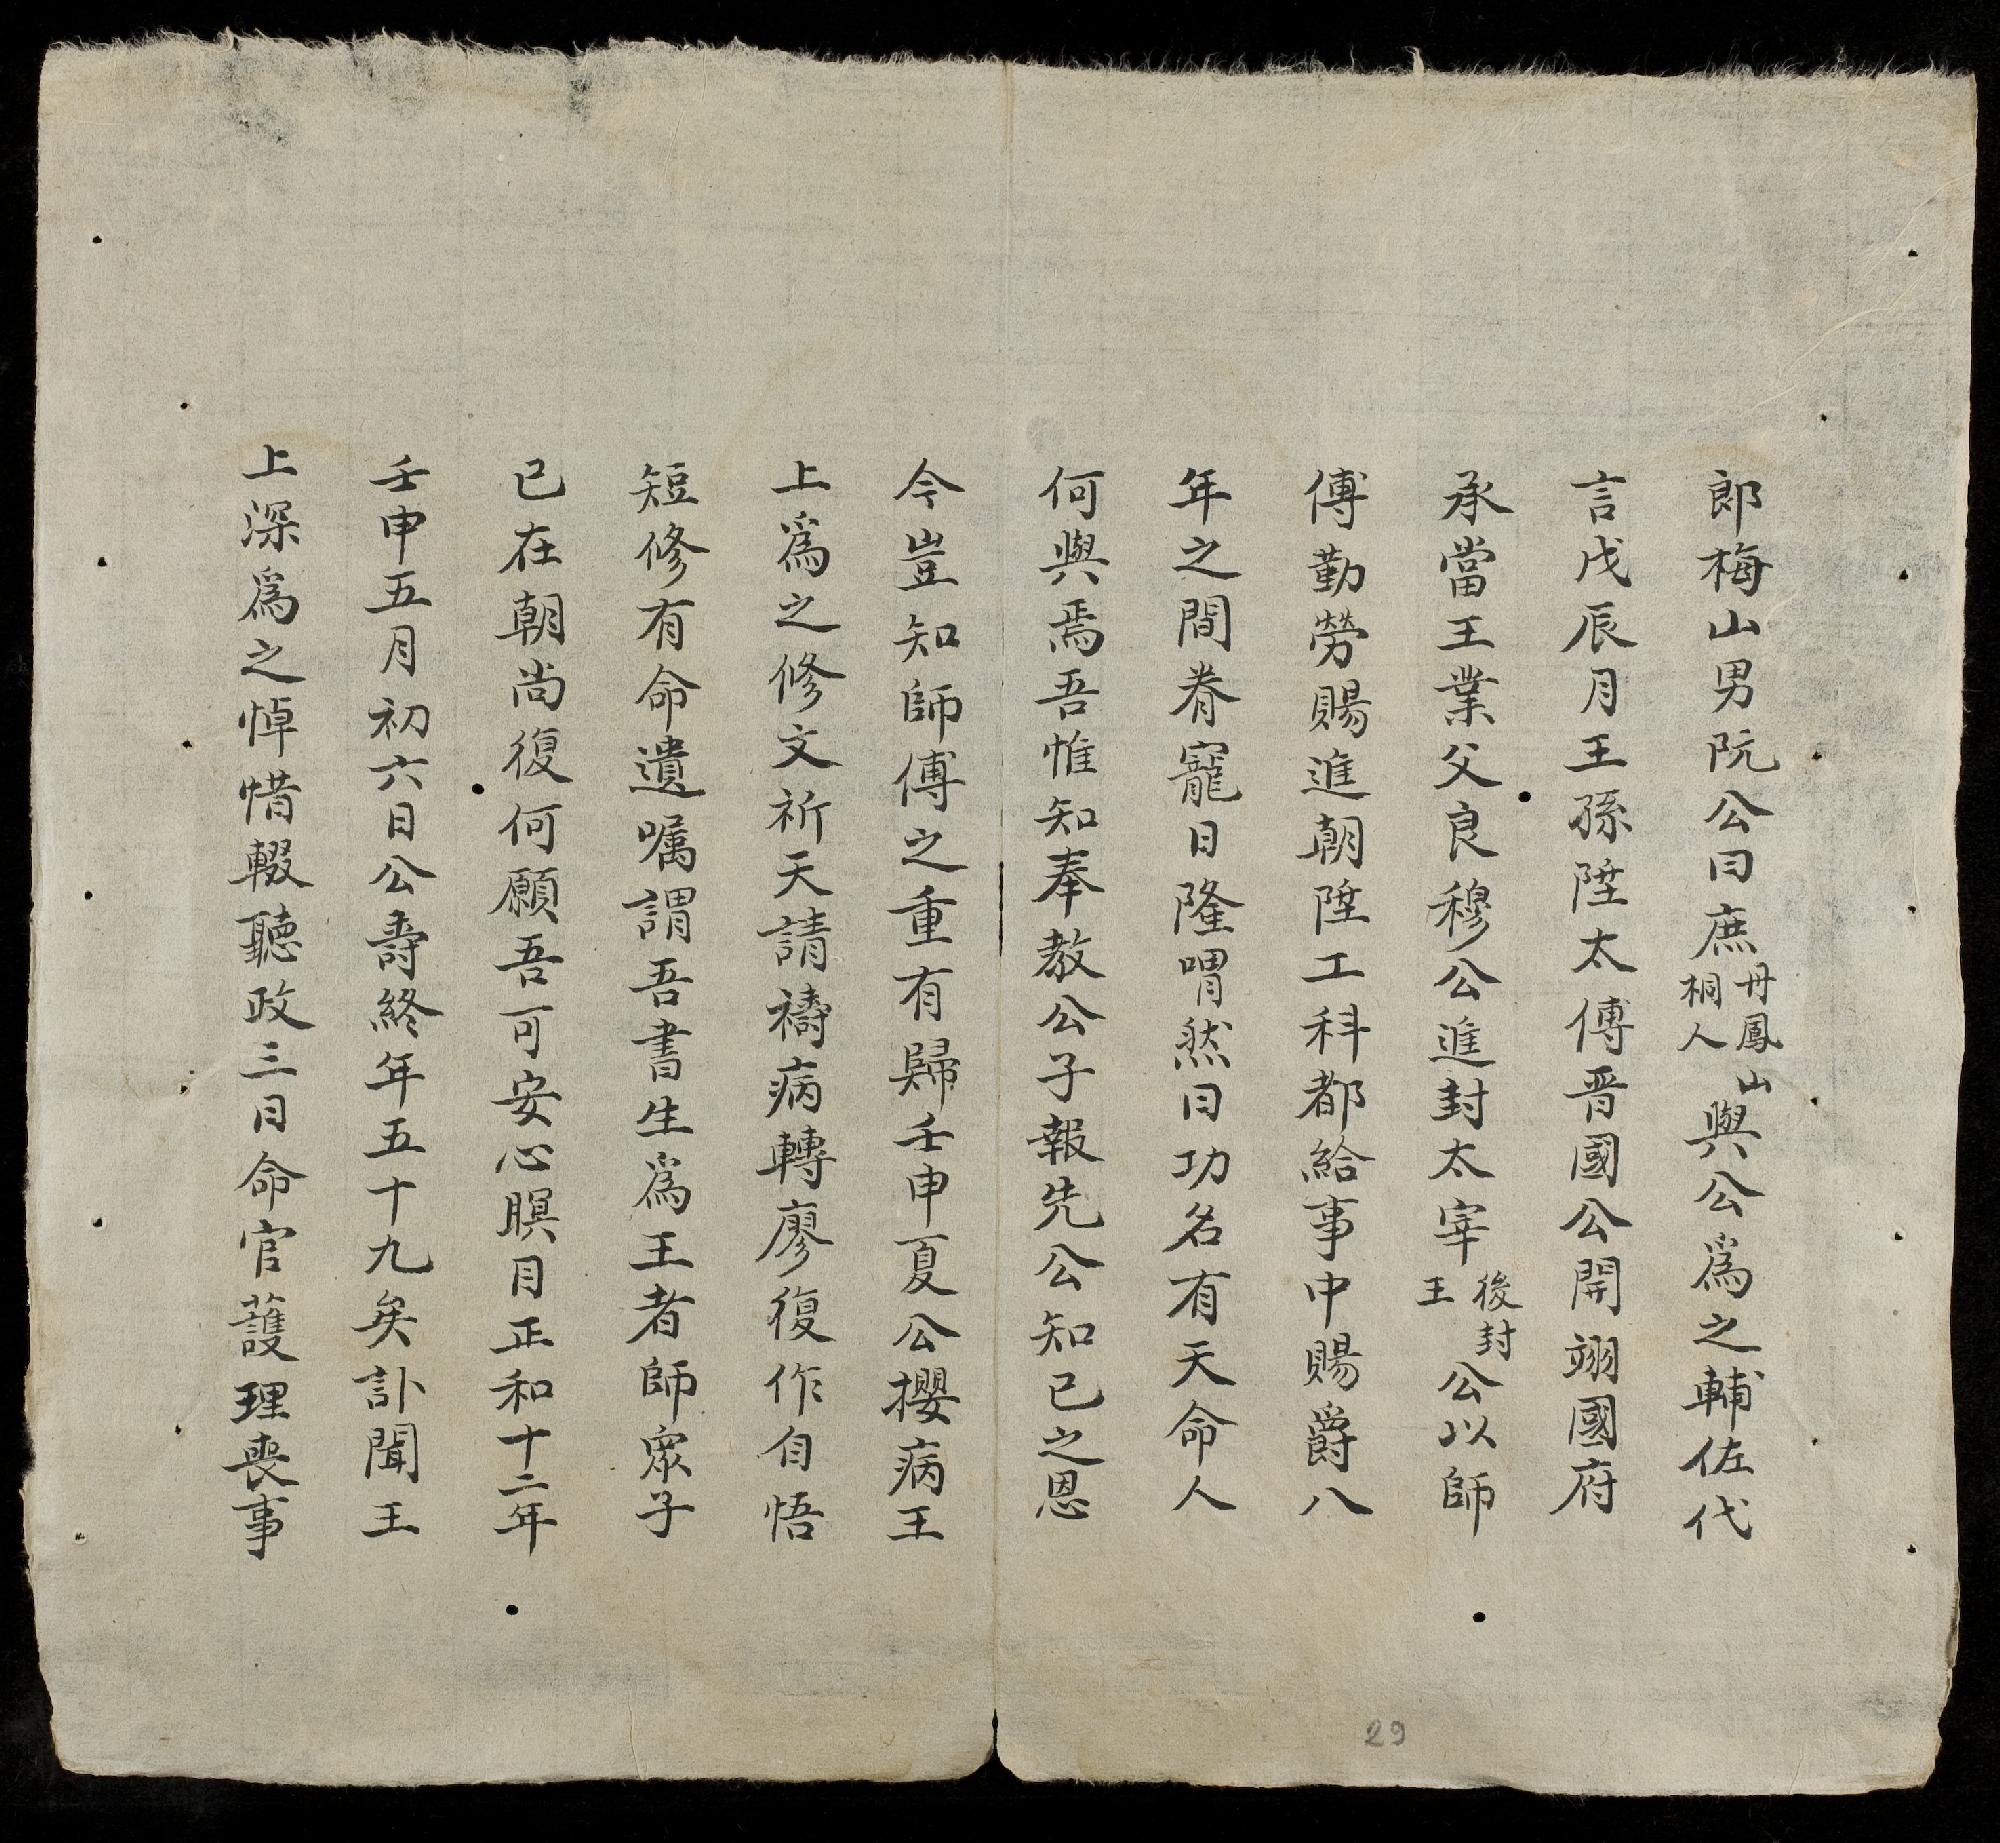 郎梅山男阮公曰庶丹鳳山桐人與公爲之輔佐代
言戊辰月王孫陞太傅晋國公開翊國府
承當王業父良穆公進封太宰後封王公以師
傅勤勞賜進朝陞工科都給事中賜爵八
年之間眷寵日隆喟然曰功名有天命人
何與焉吾惟知奉教公子報先公知已之恩
今豈知師傅之重有歸壬申夏公攖病王
上爲之修文祈天請禱病轉廖復作自悟
短修有命遺嘱謂吾書生爲王者師眾子
已在朝尚復何願吾可安心瞑目正和十二年
壬申五月初六日公壽終年五十九矣訃聞王
上深爲之悼惜輟聽政三日命官護理喪事
29